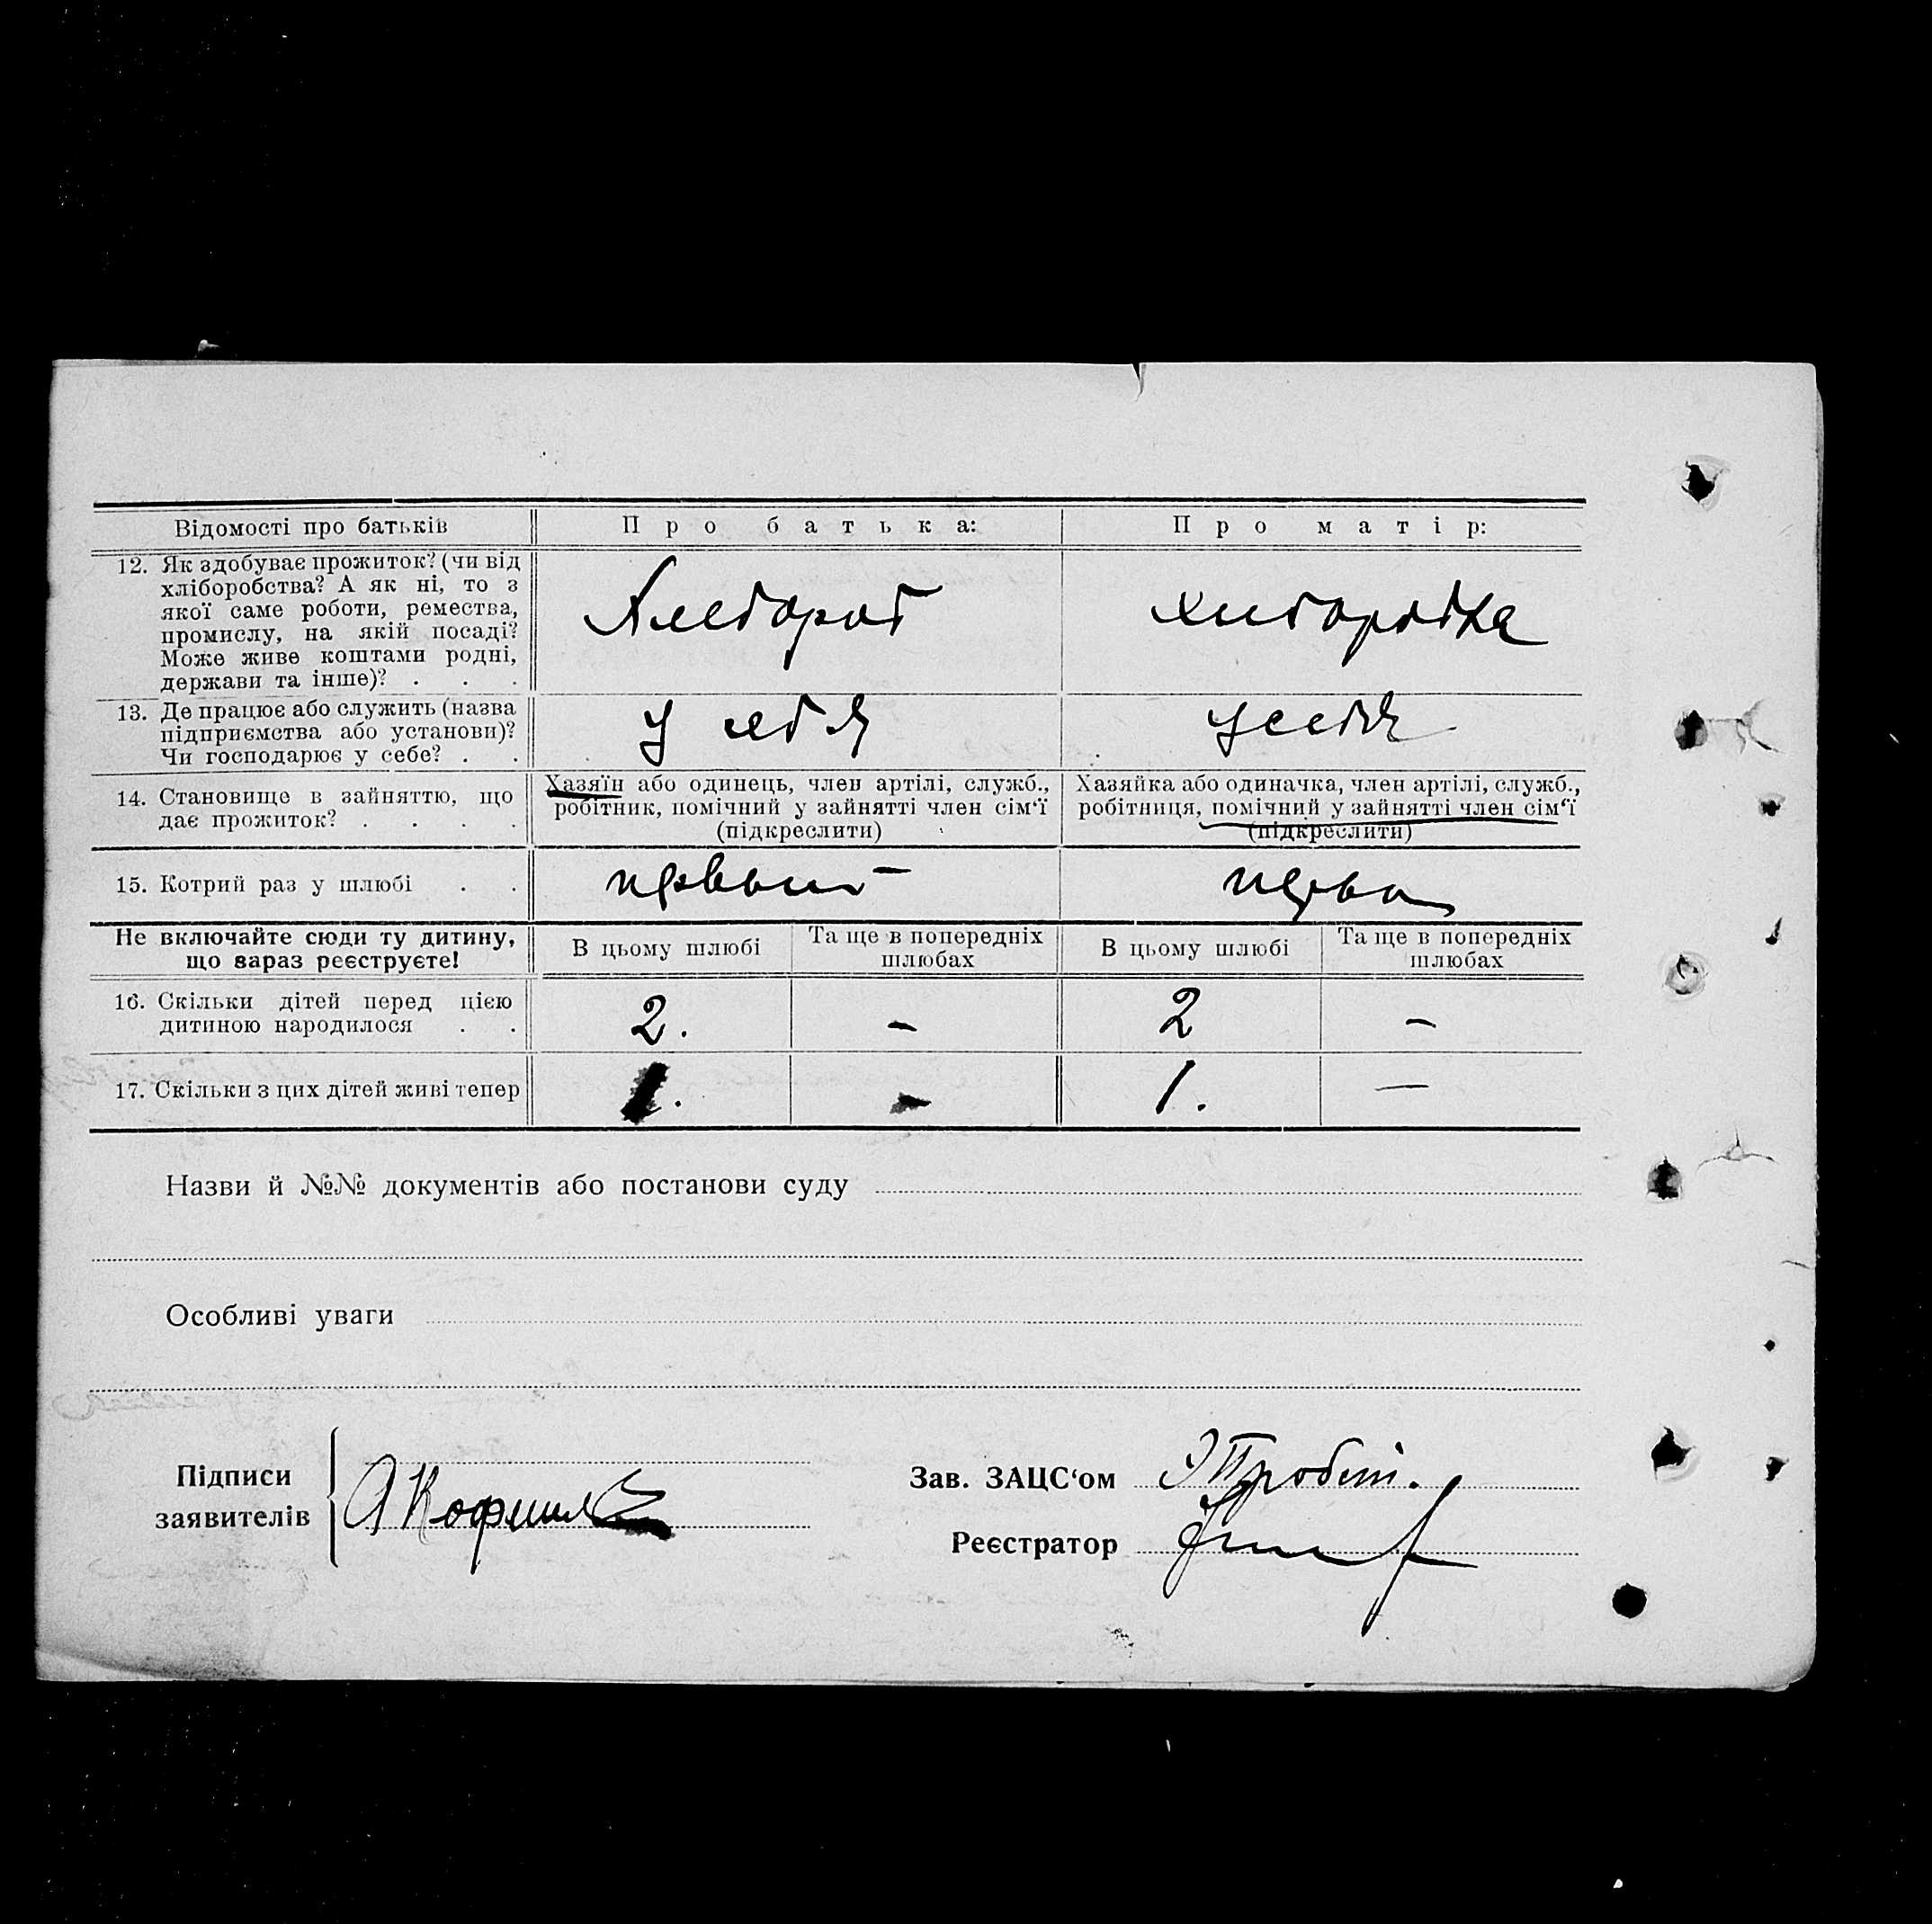 Відомості про батьків
Про батька:
Про матір:
12. Як здобуває прожиток? (чи від
хліборобства? А як ні, то з
якої саме роботи, ремества,
промислу, на якій посаді?
Може живе коштами родні,
держави та інше)? . . .
Хлебороб
хлборобка
13. Де працює або служить (назва
підприємства або установи)?
Чи господарює у себе? . .
у себя
усебя
14. Становище в зайняттю, що
дає прожиток? . . . .
Хазяїн або одинець, член артілі, служб.,
робітник, помічний у зайнятті член сім‘ї
(підкреслити)
Хазяйка або одиначка, член артілі, служб.,
робітниця, помічний у зайнятті член сім‘ї
(підкреслити)
15. Котрий раз у шлюбі . .
первый
перва
Не включайте сюди ту дитину,
що зараз реєструєте!
В цьому шлюбі
Та ще в попередніх
шлюбах
В цьому шлюбі
Та ще в попередніх
шлюбах
16. Скільки дітей перед цією
дитиною народилося . .
2. - 2 -
17. Скільки з цих дітей живі тепер
1. - 1. -
Назви й №№ документів або постанови суду
Особливі уваги
Підписи
заявителів
Зав. ЗАЦС‘ом
Реєстратор